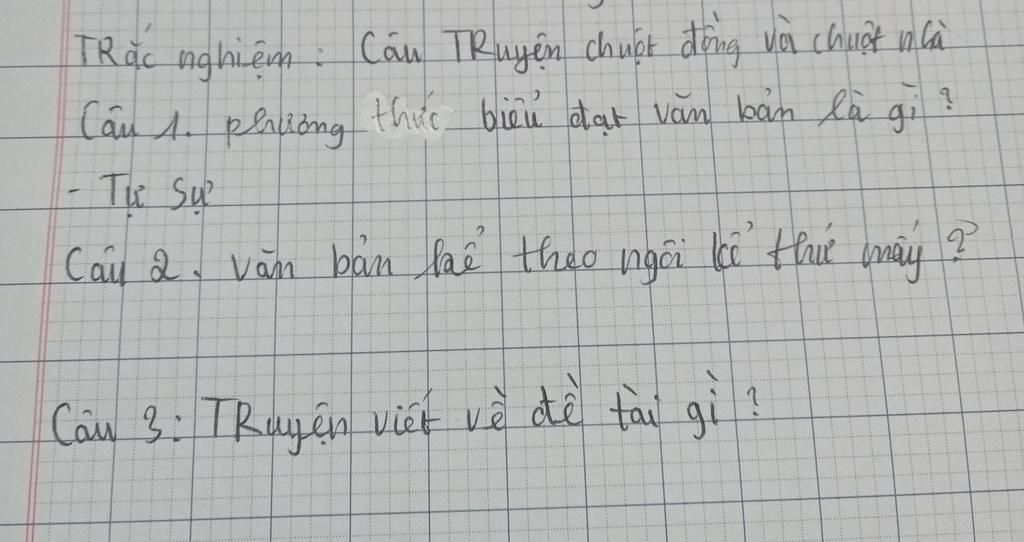 TRắc nghiệm : Câu TRuyện chuột đồng và chuột nhà
Câu 1. phương thức biểu đạt văn bản là gì ?
- Tự sự
Câu 2. văn bản kể theo ngôi kể thứ mấy ?
Câu 3 : TRuyện viết về đề tài gì ?